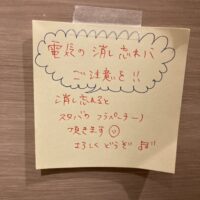 電気の消し忘れに
ご注意を!!
消し忘れると
スタバのフラペチーノ
頂きます
よろしくどうぞ